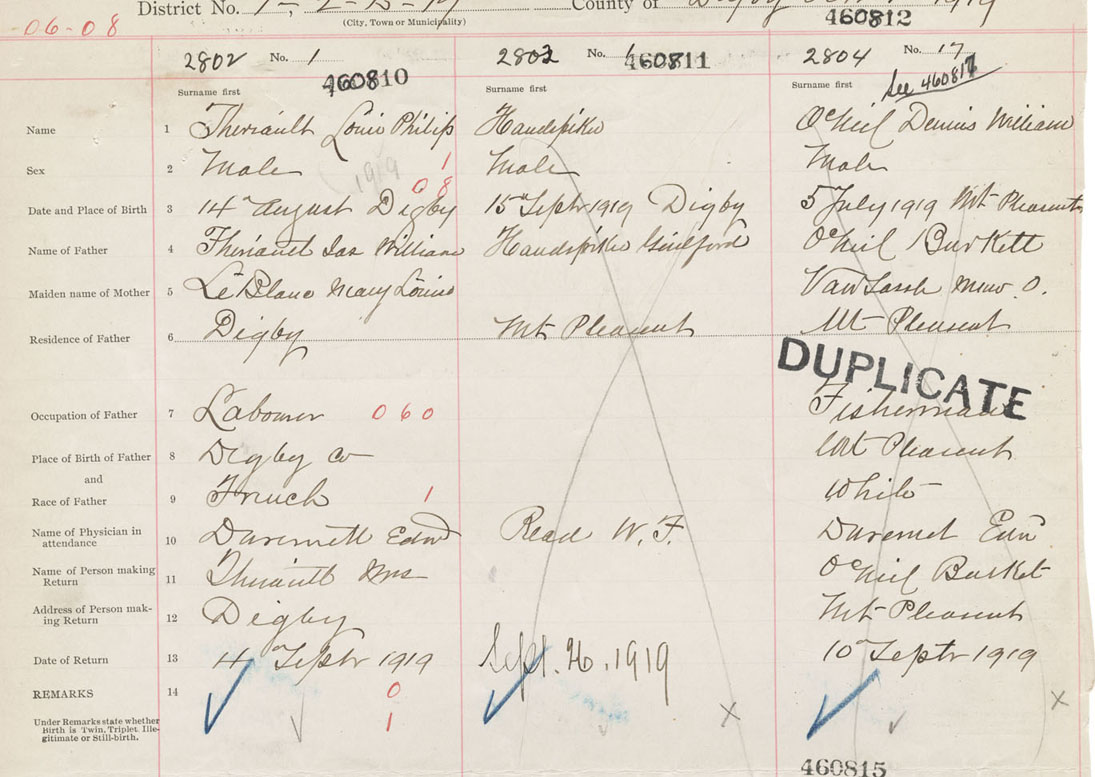 District No. County of Digby 1919
(City, Town or Municipality)
460812
-06-08
2802 No. 1 2803 No. 2804 No. 17
460810 460811 See 460817
Surname first Surname first Surname first
Name 1 Theriault Louis Philip Handspiker O'Neil Dennis William
Sex 2 Male 1 Male Male
1919 08
Date and Place of Birth 3 14 August Digby 15 Septr 1919 Digby 5 July 1919 Mt Pleasant
Name of Father 4 Theriault Jas William Handspiker Guilford O'Neil Burkett
Maiden name of Mother 5 LeBlanc Mary Louise O.
Residence of Father 6 Digby Mt Pleasent Mt Pleasent
DUPLICATE
Occupation of Father 7 Labourer 060 Fisherman
Place of Birth of Father 8 Digby Co Mt Pleasent
and
Race of Father 9 French 1 White
Name of Physician in attendance 10 Edwd Read W. F. Edw
Name of Person making Return 11 Theriault Mrs O'Neil Burket
Address of Person making Return 12 Digby Mt Pleasent
Date of Return 13 4 Septr 1919 Sept. 26. 1919 10 Septr 1919
REMARKS 14 0
Under Remarks state whether
Birth is Twin, Triplet, Ille-
gitimate or Still-birth. 1
460815